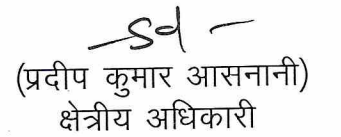 -Sd-
(प्रदीप कुमार आसनानी)
क्षेत्रीय अधिकारी